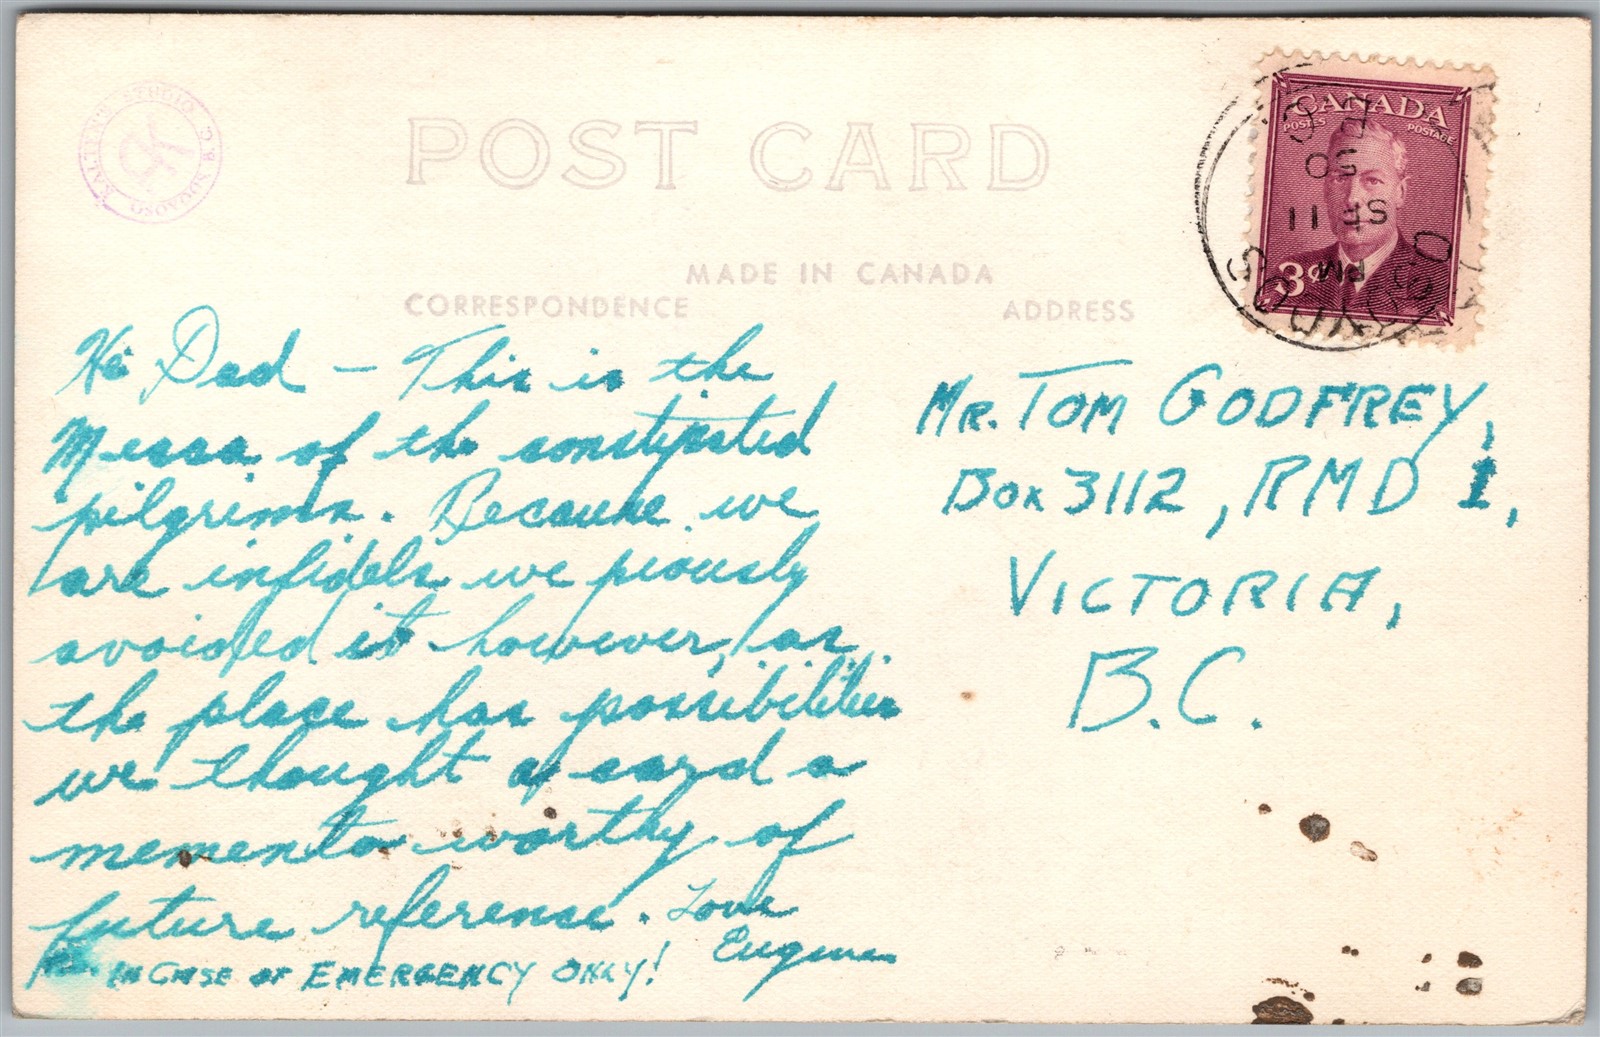 STUDIO
B.C.
POST CARD
MADE IN CANADA
CORRESPONDENCE
ADDRESS
CANADA
POSTES POSTAGE
3¢
PM
SE 11
50
Hi Dad — This is the
Mecca of the constipated
pilgrims. Because we
are infidels we piously
avoided it however, as
the place has possibilities
we thought a card a
memento worthy of
future reference. Love
Eugene
IN CASE OF EMERGENCY ONLY!
MR. TOM GODFREY,
BOX 3112, RMD 1,
VICTORIA,
B.C.